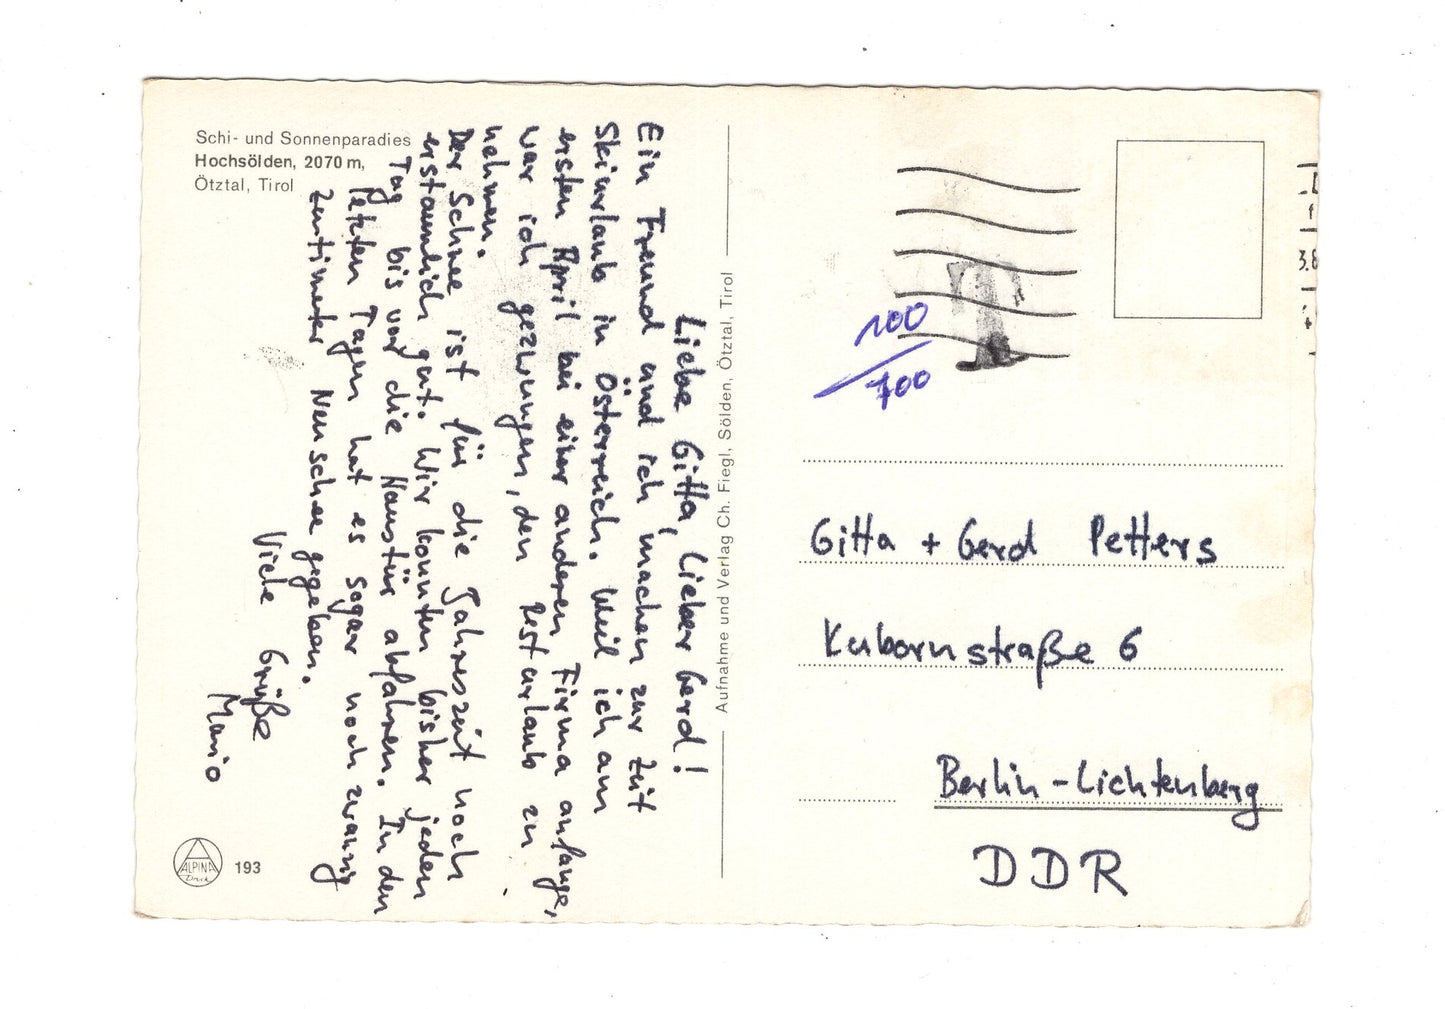 Schi- und Sonnenparadies
Hochsölden, 2070 m,
Ötztal, Tirol
Liebe Gitta, lieber Gerd!
Ein Freund und ich machen zur Zeit
Skiurlaub in Österreich. Weil ich am
ersten April bei einer anderen Firma anfange,
war ich gezwungen, den Resturlaub zu
nehmen.
Der Schnee ist für die Jahreszeit noch
erstaunlich gut. Wir konnten bisher jeden
Tag bis vor die Haustür abfahren. In den
letzten Tagen hat es sogar noch zwanzig
Zentimeter Neuschnee gegeben.
Viele Grüße
Mario
ALPINA
Druck
193
Aufnahme und Verlag Ch. Fiegl, Sölden, Ötztal, Tirol
100
700
Gitta + Gerd Petters
Kubornstraße 6
Berlin-Lichtenberg
DDR